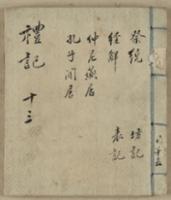 祭統
經解
仲尼燕居
孔子閒居
坊記
表記
禮記 十三